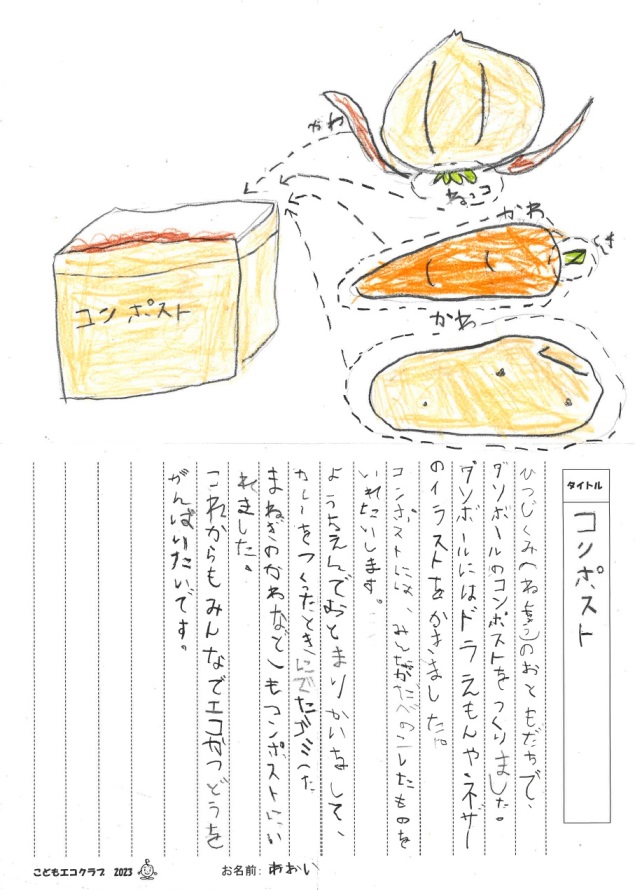 かわ
ねっこ
かわ
かわ
コンポスト
タイトル
コンポスト
ひつじぐみ
のおともだちで、
ダンボールのコンポストをつくりました。
ダンボールにはドラえもんや
のイラストをかきました。
コンポストには、みんながたべのこしたものを
いれたいします。
ようちえんでおとまりかいをして、
カレーをつくったときにでたゴミ
まねぎのかわなどもコンポストにい
れました。
これからもみんなでエコかつどうを
がんばいたいです。
こどもエコクラブ 2023
お名前: あおい